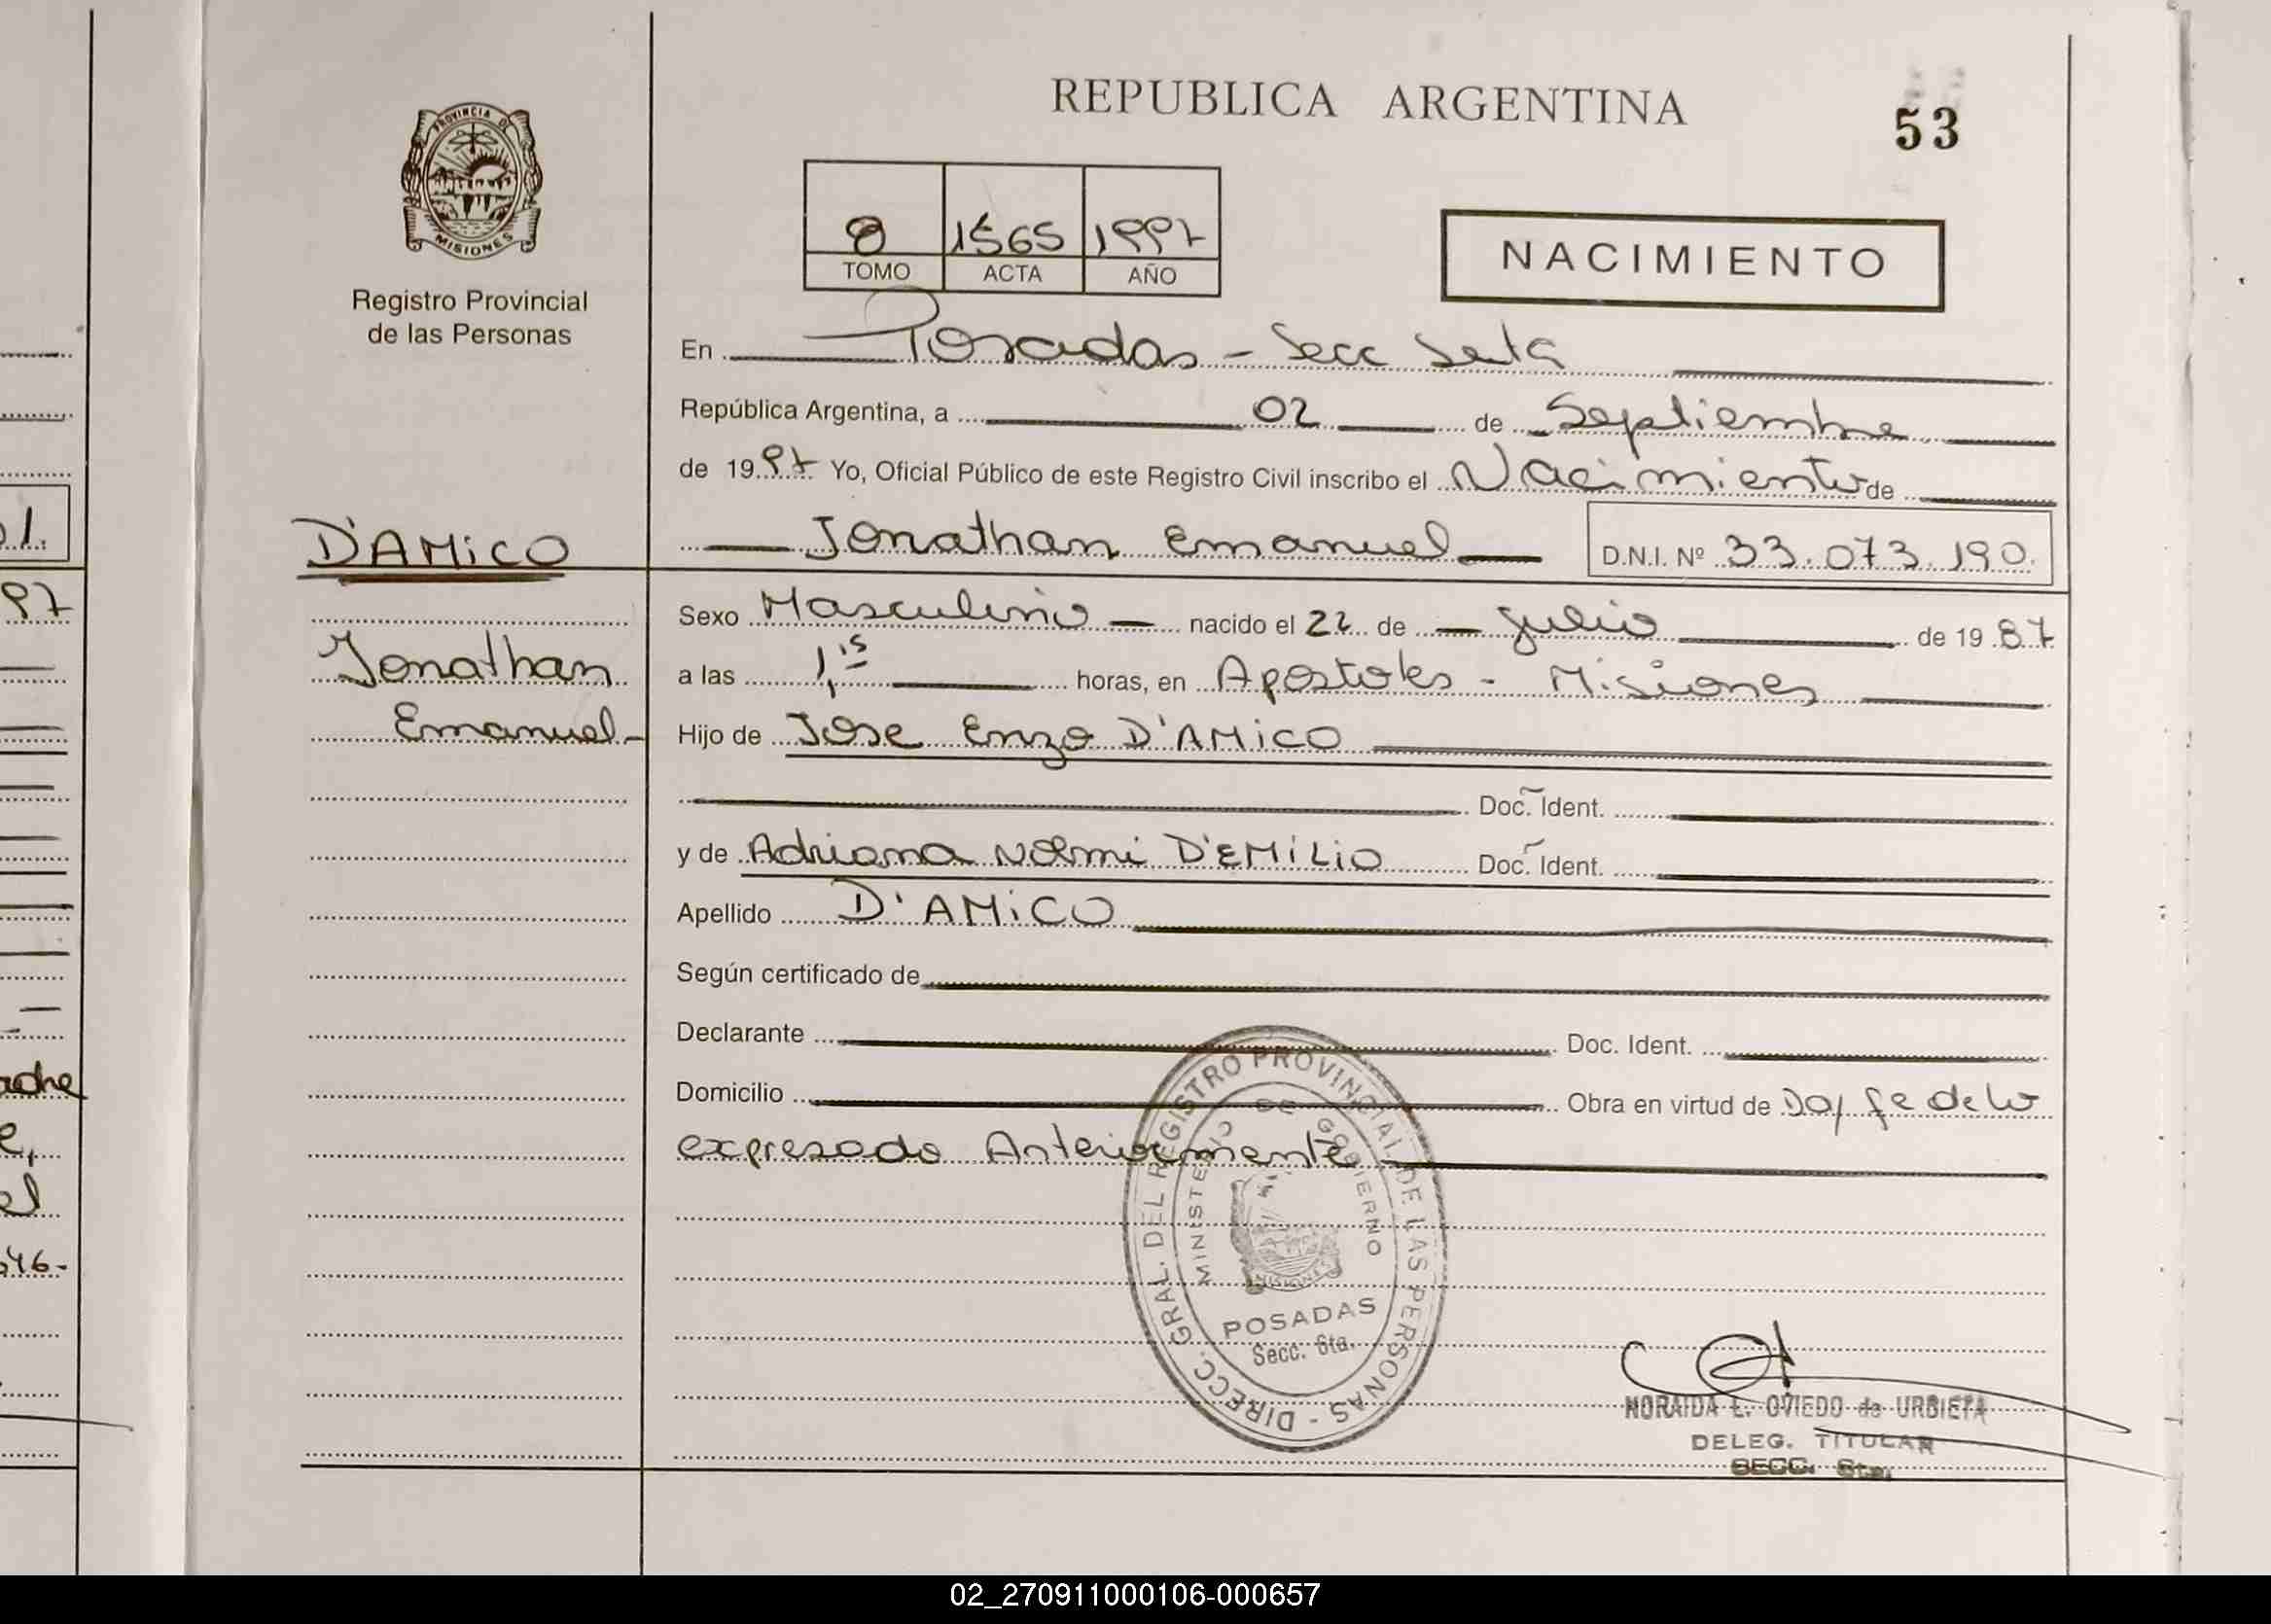 REPUBLICA ARGENTINA
53
PROVINCIA DE
MISIONES
Registro Provincial
de las Personas
8 1565 1997
TOMO ACTA AÑO
NACIMIENTO
En Posadas - Secc Sexta
República Argentina, a 02 de Septiembre
de 1997 Yo, Oficial Público de este Registro Civil inscribo el Nacimiento de
D'AMICO
Jonathan Emanuel D.N.I. Nº 33.073.190.
Sexo Masculino nacido el 22 de Julio de 1987
Jonathan
a las 1,15 horas, en Apostoles - Misiones
Emanuel-
Hijo de Jose Enzo D'AMICO
Doc. Ident.
y de Adriana Noemi D'EMILIO Doc. Ident.
Apellido D'AMICO
Según certificado de
Declarante Doc. Ident.
Domicilio Obra en virtud de Doy fe de lo
expresado Anteriormente
DIRECC. GRAL. DEL REGISTRO PROVINCIAL DE LAS PERSONAS -
MINISTERIO DE GOBIERNO
MISIONES
POSADAS
Secc. 6ta.
NORAIDA L. OVIEDO de URBIETA
DELEG. TITULAR
SECC. 6ta.
97
adre
e,
el
46-
02_270911000106-000657